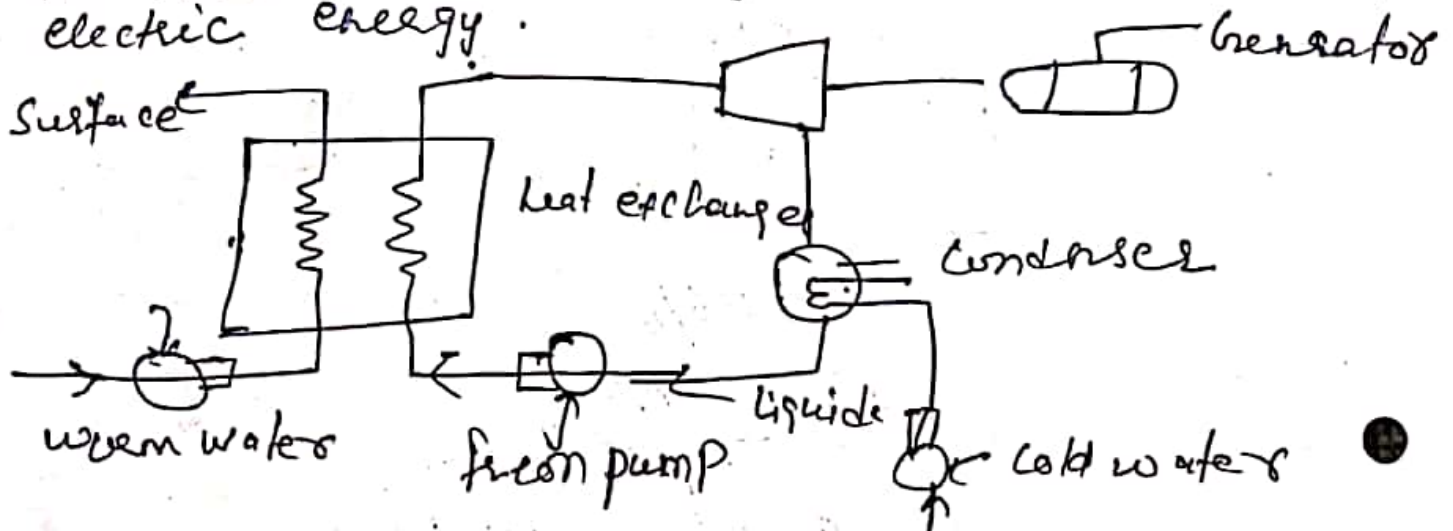 electric energy.
Generator
Surface
heat exchanger
Condenser
liquide
warm water
freon pump.
Cold water